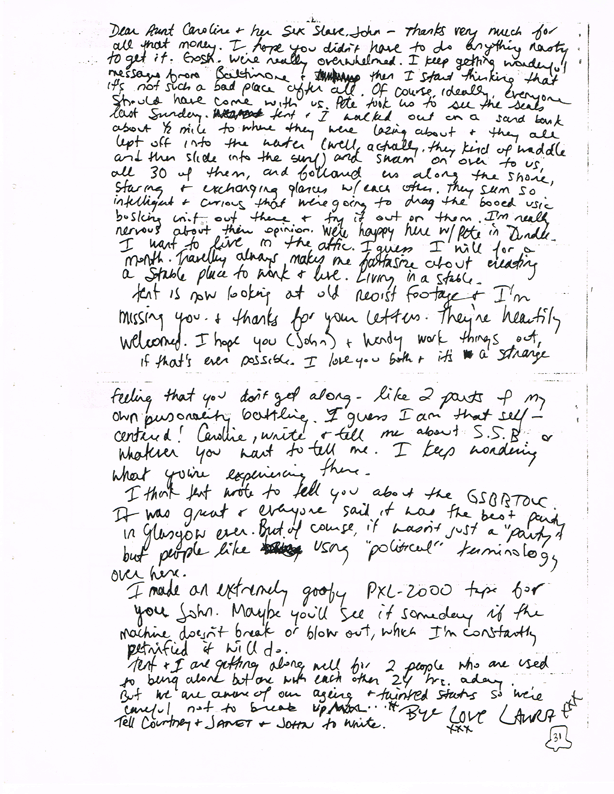 Dear Aunt Caroline + her Sex Slave, John - Thanks very much for
all that money. I hope you didn't have to do anything nasty
to get it. Gosh. We're really overwhelmed. I keep getting wonderful
messages from Baltimore + then I start thinking that
it's not such a bad place after all. Of course, ideally, everyone
should have come with us. Pete took us to see the seals
last Sunday. tent + I walked out on a sand bank
about ½ mile to where they were lazing about + they all
lept off into the water (well, actually, they kind of waddle
and then slide into the surf) and swam on over to us,
all 30 of them, and followed us along the shore,
staring + exchanging glances w/ each other. They seem so
intelligent + curious that we're going to drag the booed usic
busking unit out there + try it out on them. I'm really
nervous about their opinion. We're happy here w/ Pete in Dundee.
I want to live in the attic. I guess I will for a
month. Travelling always makes me fantasize about creating
a stable place to work + live. Living in a stable.
tent is now looking at old neoist footage + I'm
missing you. + thanks for your letters. They're heartily
welcomed. I hope you (John) + Wendy work things out,
if that's ever possible. I love you both + it's a strange
feeling that you don't get along - like 2 parts of my
own personality battling. I guess I am that self-
centered! Caroline, write + tell me about S.S.B. or
whatever you want to tell me. I keep wondering
what you're experiencing there.
I think tent wrote to tell you about the
It was great + everyone said it was the best party
in Glasgow ever. But of course, it wasn't just a "party"
but people like using "political" terminology
over here.
I made an extremely goofy PXL-2000 tape for
you John. Maybe you'll see it someday if the
machine doesn't break or blow out, which I'm constantly
petrified it will do.
tent + I are getting along well for 2 people who are used
to being alone but are with each other 24 hrs. a day.
But we are aware of our ageing + tainted status so we're
careful not to break up ... Bye Love LAURA xxx
Tell Courtney + JANET + JOHN to write. xxx
31